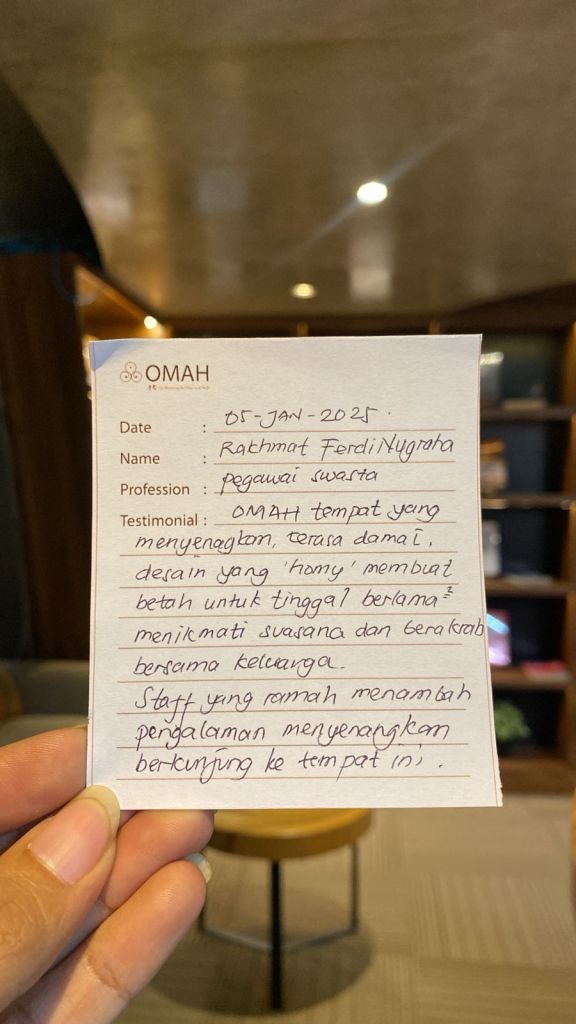 OMAH
Date : 05-JAN-2025.
Name : Rakhmat Ferdi Nugraha
Profession : pegawai swasta
Testimonial : OMAH tempat yang
menyenagkan, terasa damai,
desain yang 'homy' membuat
betah untuk tinggal berlama²
menikmati suasana dan berakrab
bersama keluarga.
Staff yang ramah menambah
pengalaman menyenangkan
berkunjung ke tempat ini.